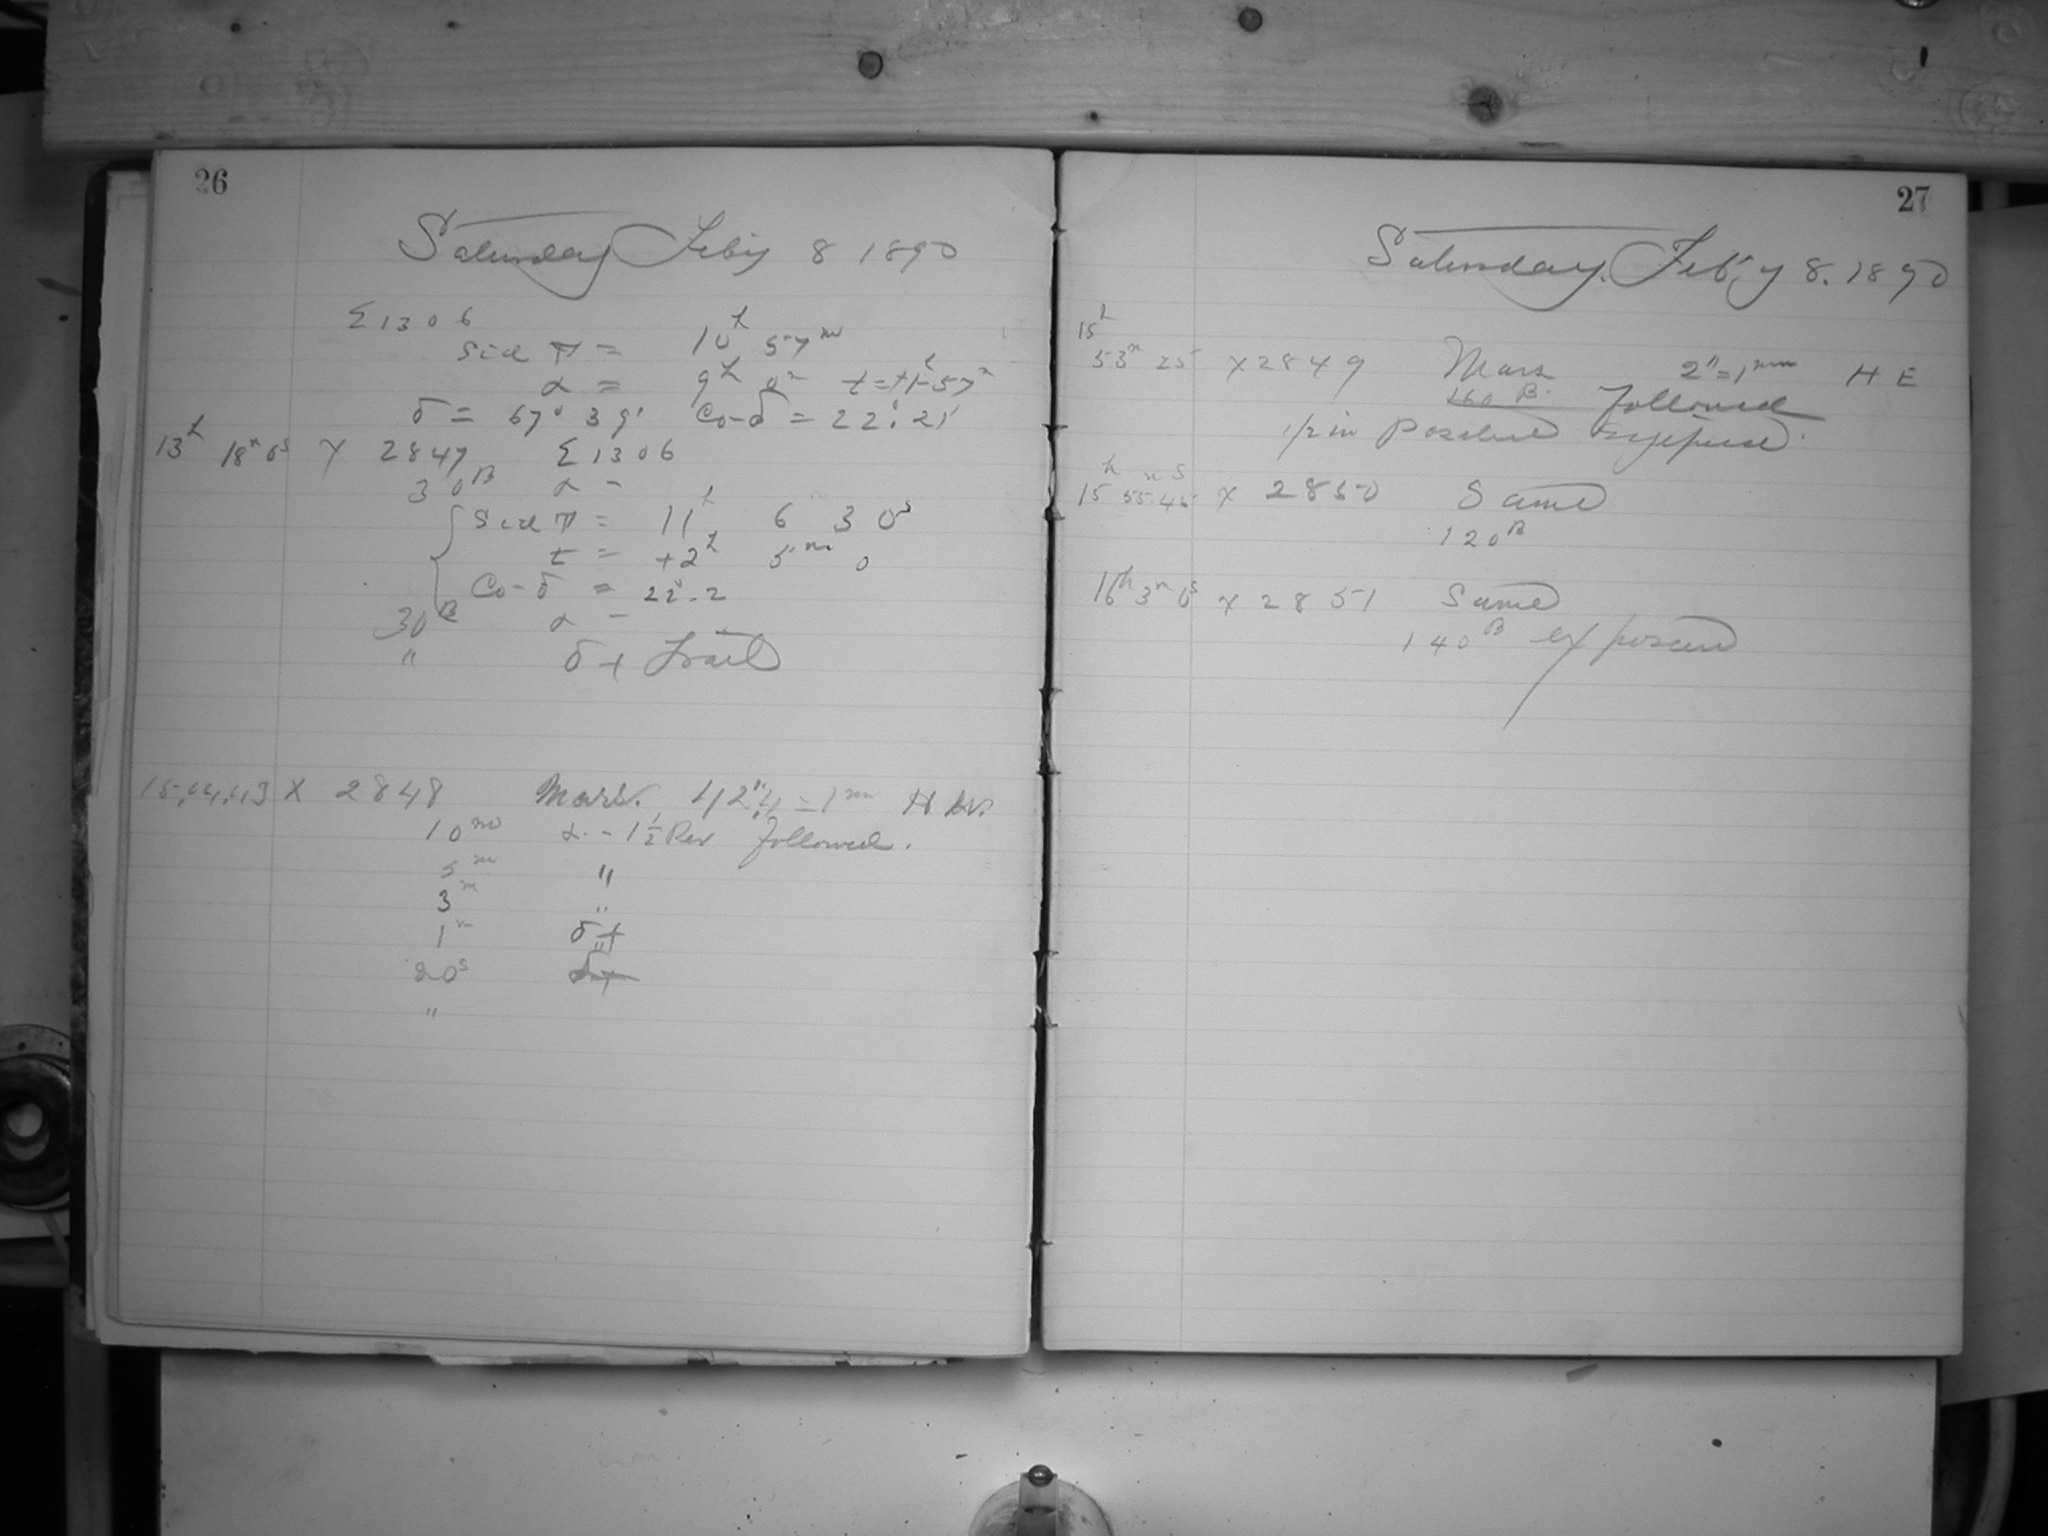 26
Saturday Feb'y 8 1890
Σ 1306
Sid T = 10h 57m
α = 9h 0m t = +1h 57m
δ = 67° 39' Co-δ = 22° 21'
13h 18m 0s Y 2847 Σ 1306
30B α -
Sid T = 11h 6 30s
t = +2h 5m 0
Co-δ = 22°.2
30B α -
" δ + Trail
15.14.13 X 2848 Mars. 42".4 = 1m
10m α - 1½ Rev followed.
5m "
3m "
1m δ +
20s "
"
27
Saturday. Feb'y 8. 1890
15h
53m 25 X 2849 Mars 2" = 1mm H E
160 B. followed
1/2 in
15h 55m 45s X 2850 Same
120B
16h 3m 0s X 2851 Same
140B exposure